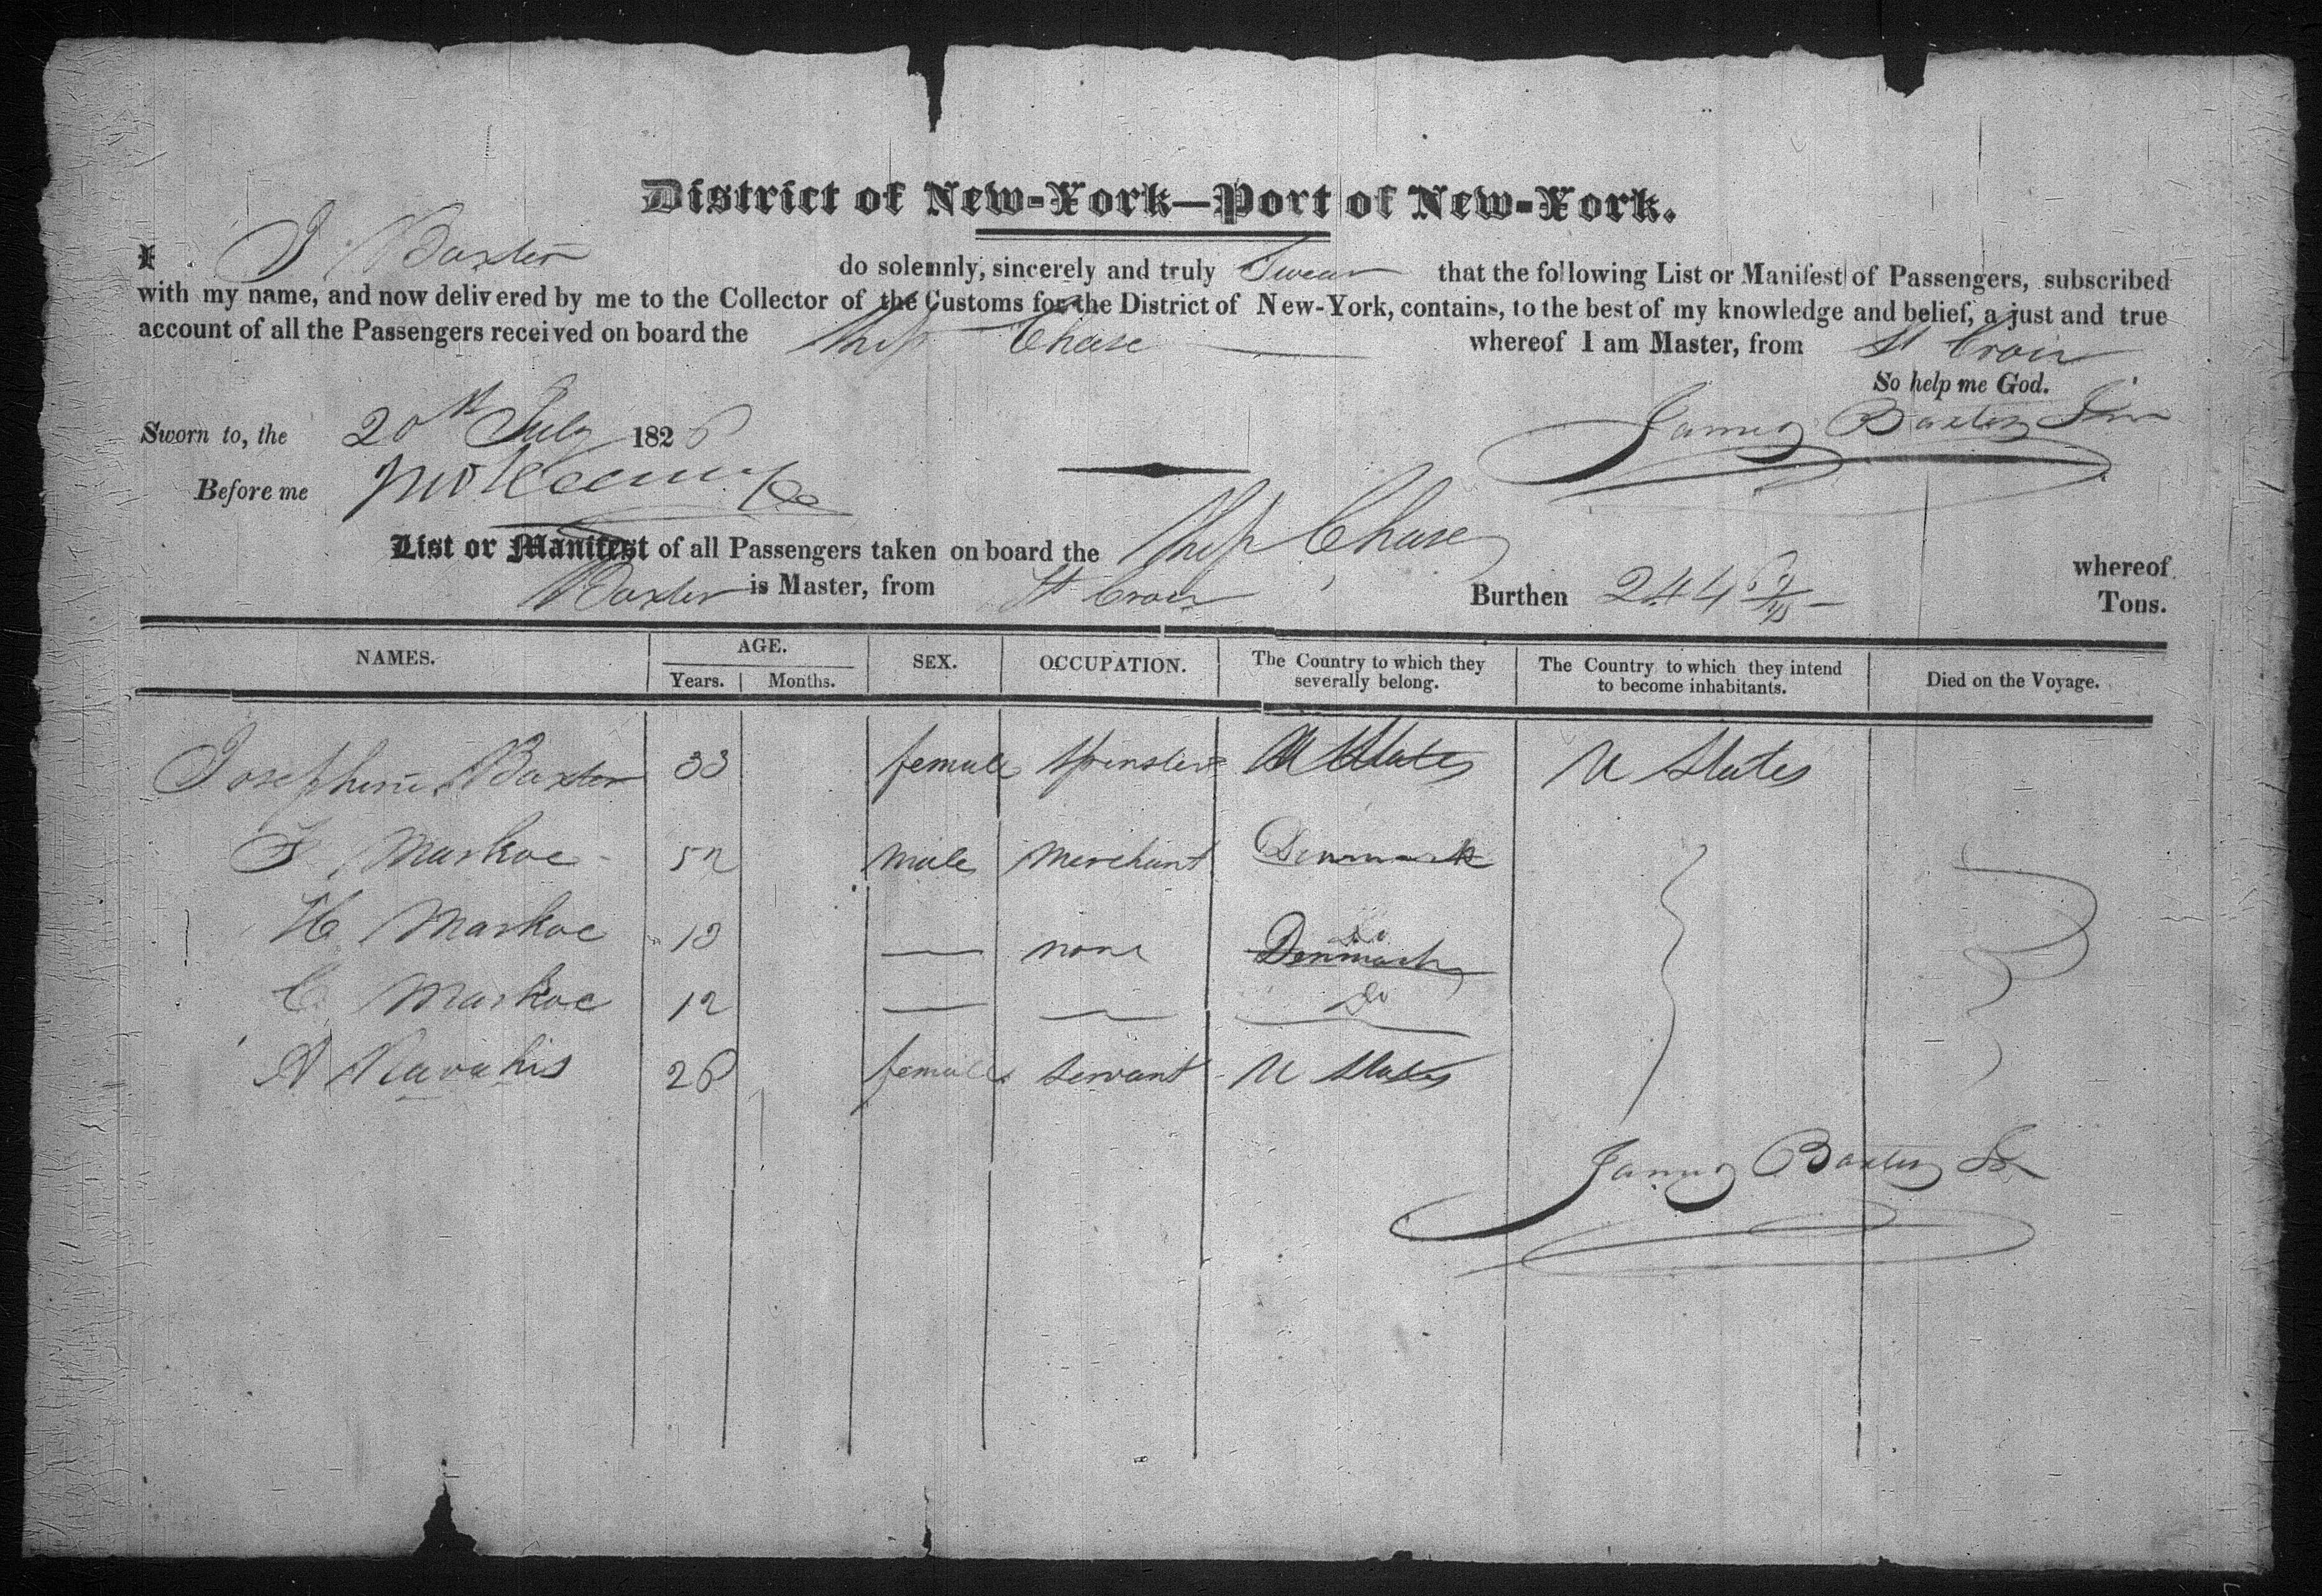 District of New-York—Port of New-York.
I J Baxter do solemnly, sincerely and truly Swear that the following List or Manifest of Passengers, subscribed
with my name, and now delivered by me to the Collector of the Customs for the District of New-York, contains, to the best of my knowledge and belief, a just and true
account of all the Passengers received on board the Ship Chase whereof I am Master, from St Croix
So help me God.
Sworn to, the 20th July 1826 James Baxter Jun
Before me
List or Manifest of all Passengers taken on board the Ship Chase whereof
Baxter is Master, from St Croix Burthen 244 Tons.
NAMES. AGE. SEX. OCCUPATION. The Country to which they severally belong. The Country to which they intend to become inhabitants. Died on the Voyage.
Years. Months.
Josephine Baxter 33 female Spinster U States U States
Markoe 52 male merchant Denmark
H Markoe 13 — none Denmark Do
C Markoe 12 — — Do
female servant U States
James Baxter Jr